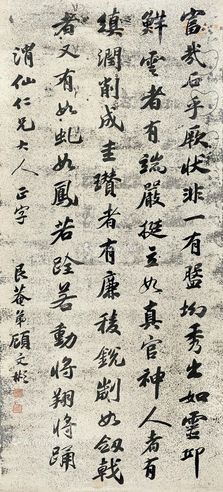 富哉石乎厥狀非一有盤坳秀出如靈邱
鮮雲者有端嚴挺立如真官神人者有
縝潤削成圭瓚者有廉稜銳劌如劍戟
者又有如虬如鳳若跧若動將翔將踊
渭仙仁兄大人正字 艮菴弟顧文彬